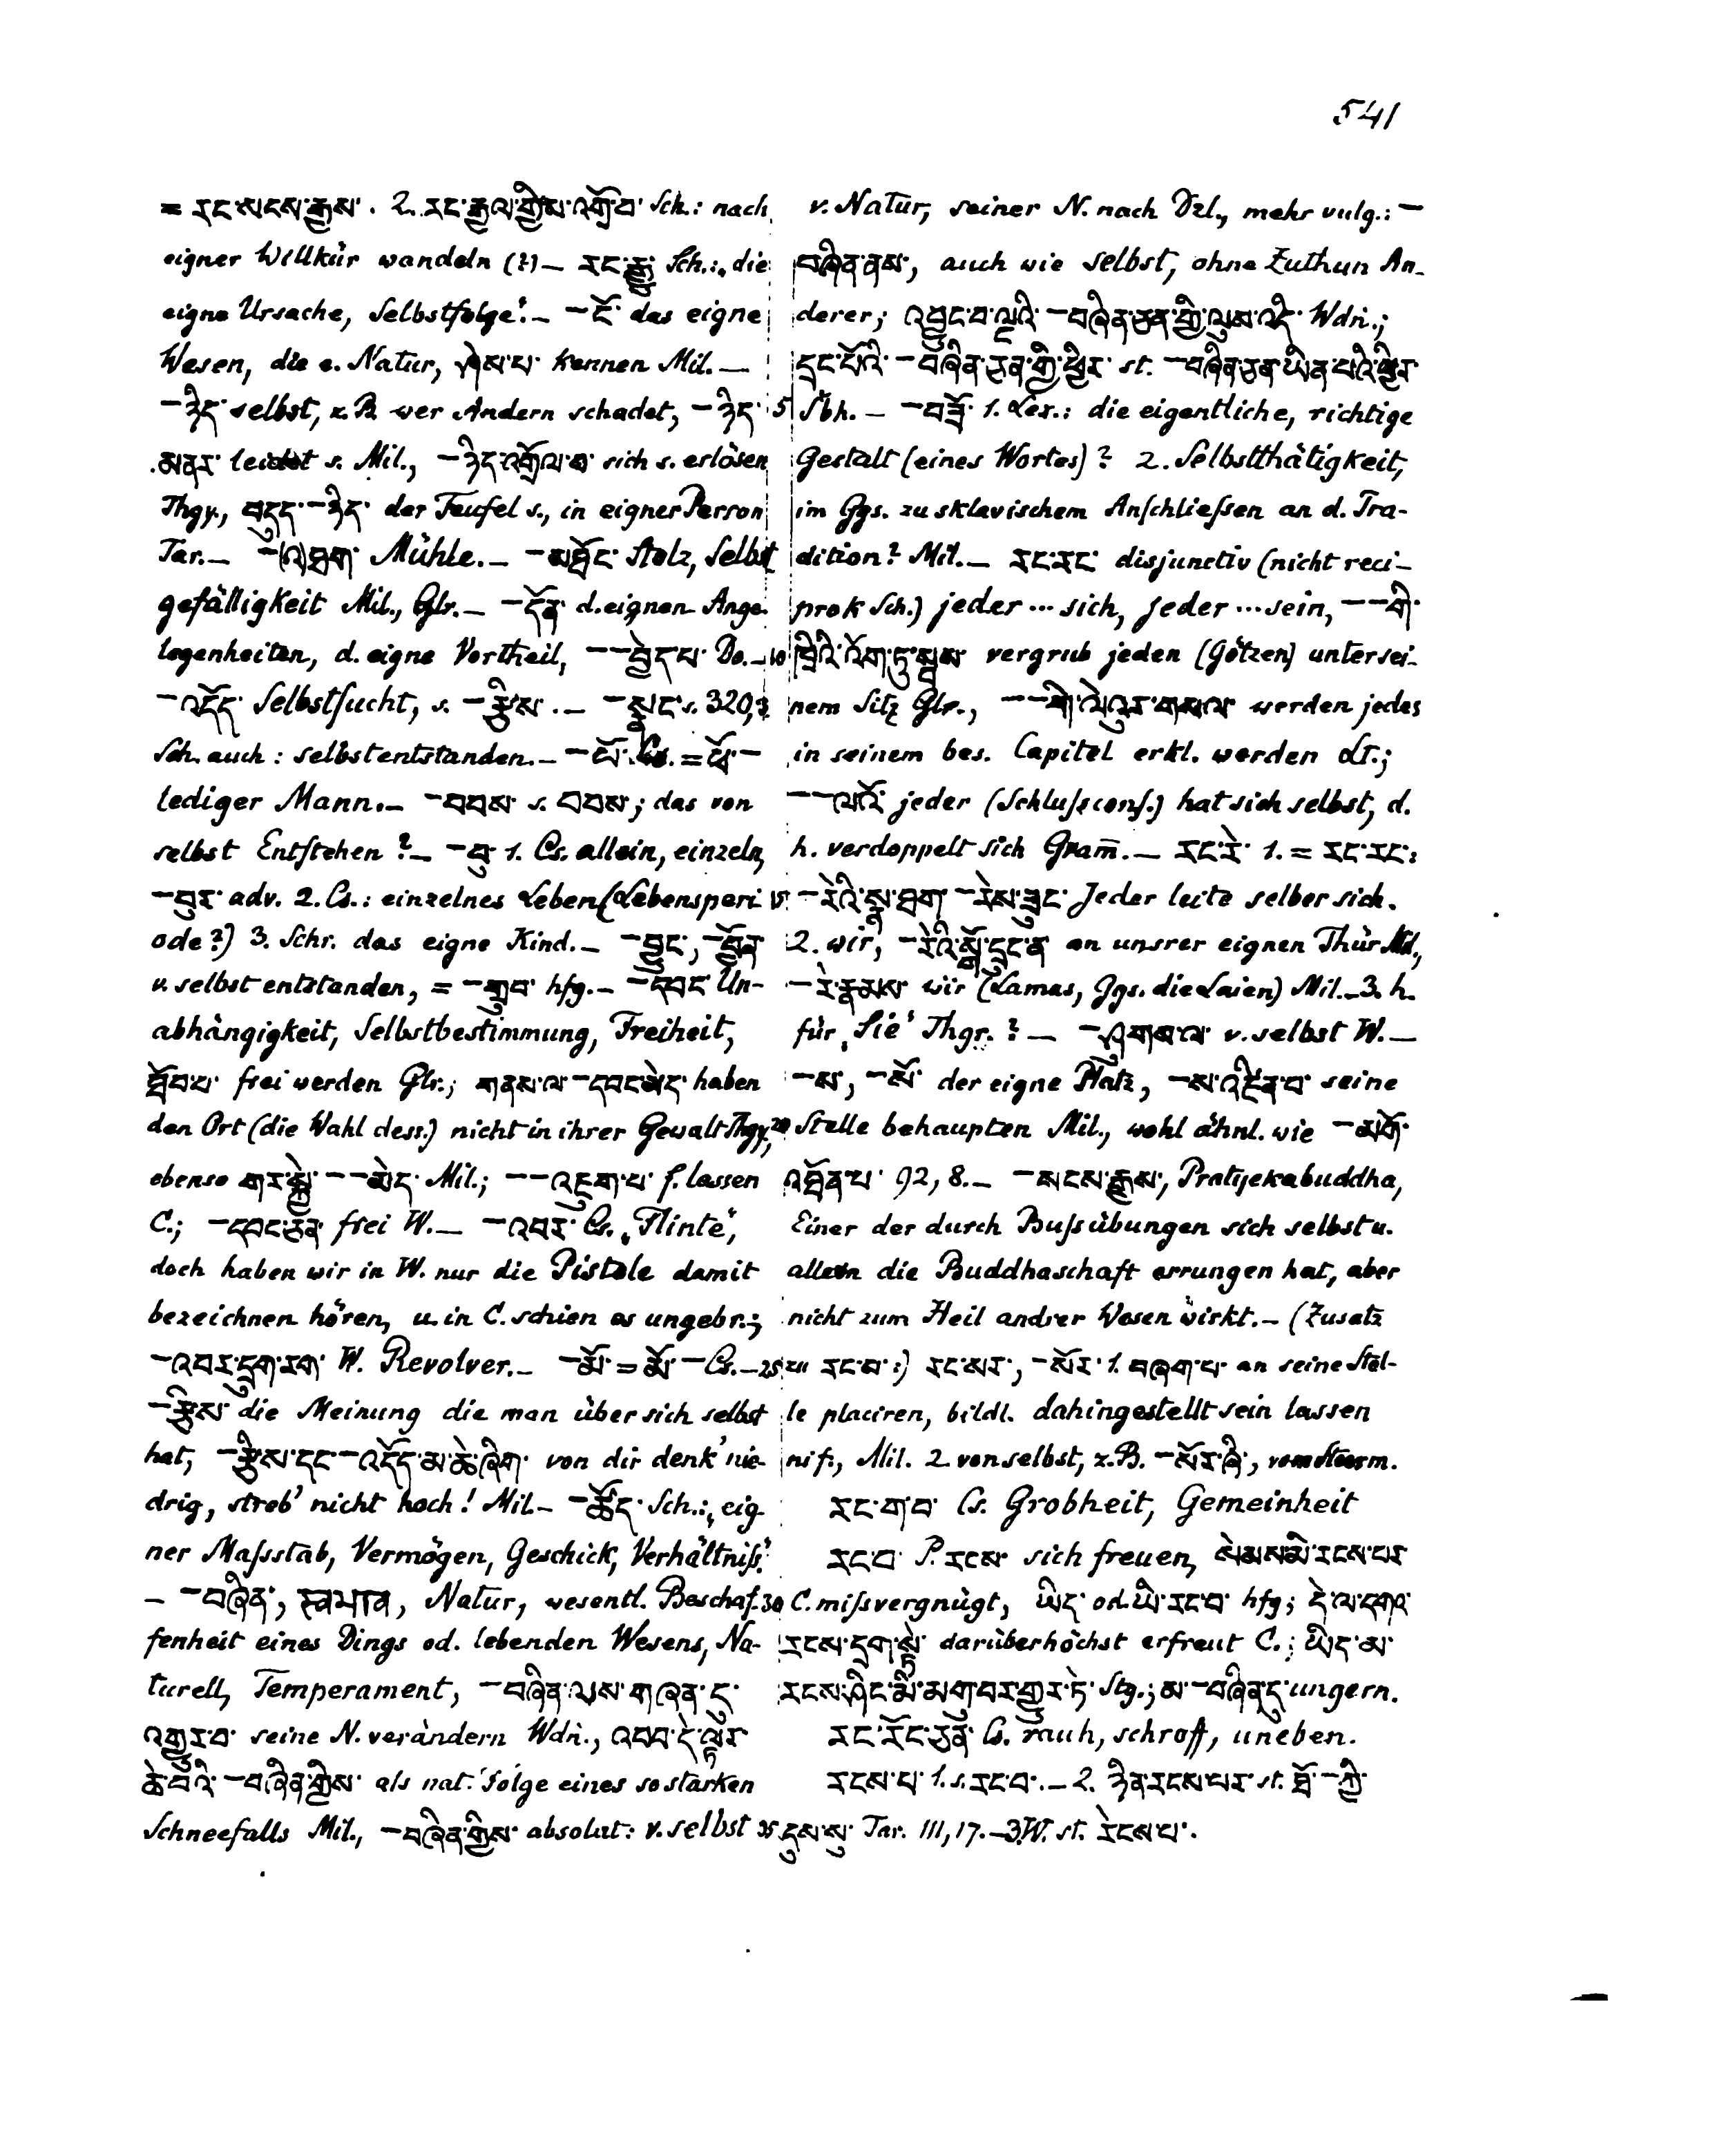 541
= རང་སངས་རྒྱས་. 2. རང་རྒྱལ་གྱིས་འགྲོ་བ་ Sch.: nach
eigner Willkür wandeln (?) — རང་རྒྱུ་ Sch.: „die
eigne Ursache, Selbstfolge". — —ངོ་ das eigne
Wesen, die e. Natur, ཤེས་པ་ kennen Mil. —
—ཉིད་ selbst, z.B. wer Andern schadet, —ཉིད་
མནར་ leidet s. Mil., —ཉིད་འགྲོལ་བ་ sich s. erlösen
Thgy., བདུད་—ཉིད་ der Teufel s., in eigner Person
Tar. — —(འ)ཐག་ Mühle. — —མཐོང་ Stolz, Selbst
gefälligkeit Mil., Glr. — —དོན་ d. eignen Ange-
legenheiten, d. eigne Vortheil, ——བྱེད་པ་ Do. —
—འདོད་ Selbstsucht, s. —རྩིས་. — —སྣང་ s. 320,3
Sch. auch: selbstentstanden. — —པོ་ Cs. = ཕོ་—
lediger Mann. — —བབས་ s. བབས་; das von
selbst Entstehen? — —བུ་ 1. Cs. allein, einzeln,
—བུར་ adv. 2. Cs.: einzelnes Leben (Lebensperi
ode?) 3. Schr. das eigne Kind. — —བྱུང་, —བྱོན་
v. selbst entstanden, = —གྲུབ་ hfg. — —དབང་ Un-
abhängigkeit, Selbstbestimmung, Freiheit,
ཐོབ་པ་ frei werden Glr.; གནས་ལ་—དབང་མེད་ haben
den Ort (die Wahl dess.) nicht in ihrer Gewalt Thgy.,
ebenso གར་སྐྱེ་——མེད་ Mil.; ——འཇུག་པ་ f. lassen
C.; —དབང་ཅན་ frei W. — —འབར་ Cs. „Flinte",
doch haben wir in W. nur die Pistole damit
bezeichnen hören, u. in C. schien es ungebr.;
—འབར་དྲུག་རག་ W. Revolver. — —མོ་ = མོ་— Cs. —
—རྩིས་ die Meinung die man über sich selbst
hat, —རྩིས་དང་—འདོད་མ་ཆེ་ཞིག་ von dir denk' nie-
drig, streb' nicht hoch! Mil. — —ཚོད་ Sch.: „eig-
ner Maſsstab, Vermögen, Geschick, Verhältniſs".
— —བཞིན་, स्वभाव, Natur, wesentl. Beschaf-
fenheit eines Dings od. lebenden Wesens, Na-
turell, Temperament, —བཞིན་ལས་གཞན་དུ་
འགྱུར་བ་ seine N. verändern Wdn., འབབ་དེ་ལྟར་
ཆེ་བའི་—བཞིན་གྱིས་ als nat. Folge eines so starken
Schneefalls Mil., —བཞིན་གྱིས་ absolut: v. selbst
v. Natur, seiner N. nach Dzl., mehr vulg.: —
བཞིན་ནས་, auch wie selbst, ohne Zuthun An-
derer; འབྱུང་བ་ལྔའི་—བཞིན་ཅན་གྱི་ལུས་འདི་ Wdn.;
དྲང་པོའི་—བཞིན་ཅན་གྱི་ཕྱིར་ st. —བཞིན་ཅན་ཡིན་པའི་ཕྱིར་
5 Sbh. — —བཟོ་ 1. Lex.: die eigentliche, richtige
Gestalt (eines Wortes)? 2. Selbstthätigkeit,
im Ggs. zu sklavischem Anſchlieſsen an d. Tra-
dition? Mil. — རང་རང་ disjunctiv (nicht reci-
prok Sch.) jeder ... sich, jeder ... sein, ——གི་
10 ཁྲིའི་འོག་ཏུ་སྦས་ vergrub jeden (Götzen) unter sei-
nem Sitz Glr., ——གི་ལེའུར་གསལ་ werden jedes
in seinem bes. Capitel erkl. werden Lt.;
——ལའོ་ jeder (Schluſscons.) hat sich selbst, d.
h. verdoppelt sich Gram̄. — རང་རེ་ 1. = རང་རང་:
15 —རེའི་སྣ་ཐག་—རེས་ཟུང་ Jeder leite selber sich.
2. wir, —རེའི་སྒོ་དྲུང་ན་ an unsrer eignen Thür Mil.,
—རེ་རྣམས་ wir (Lamas, Ggs. die Laien) Mil. — 3. h.
für „Sie" Thgr.? — —ཤུགས་ལ་ v. selbst W. —
—ས་, —སོ་ der eigne Platz, —ས་འཛིན་བ་ seine
20 Stelle behaupten Mil., wohl ähnl. wie —མགོ་
འཐོན་པ་ 92, 8. — —སངས་རྒྱས་, Pratyekabuddha,
Einer der durch Buſsübungen sich selbst u.
allein die Buddhaschaft errungen hat, aber
nicht zum Heil andrer Wesen wirkt. — (Zusatz
25 zu རང་བ་:) རང་སར་, —སོར་ 1. བཞག་པ་ an seine Stel-
le placiren, bildl. dahingestellt sein lassen
nif., Mil. 2. von selbst, z.B. —སོར་ཞི་, vom Sturm.
རང་ག་བ་ Cs. Grobheit, Gemeinheit
རང་བ་ P. རངས་ sich freuen, སེམས་མི་རངས་པར་
30 C. miſsvergnügt, ཡིད་ od. ཡི་རང་བ་ hfg; དེ་ལ་དགའ་
རངས་དྲག་སྟེ་ darüber höchst erfreut C.; ཡིད་མ་
རངས་ཤིང་མི་མགུ་བར་གྱུར་ཏེ་ Stg.; མ་—བཞིན་དུ་ ungern.
རང་རོང་ཅན་ Cs. rauh, schroff, uneben.
རངས་པ་ 1. s. རང་བ་. — 2. ཉིན་རངས་པར་ st. ཐོ་—ཀྱི་
35 དུས་སུ་ Tar. 111, 17. — 3. W. st. རེངས་པ་.